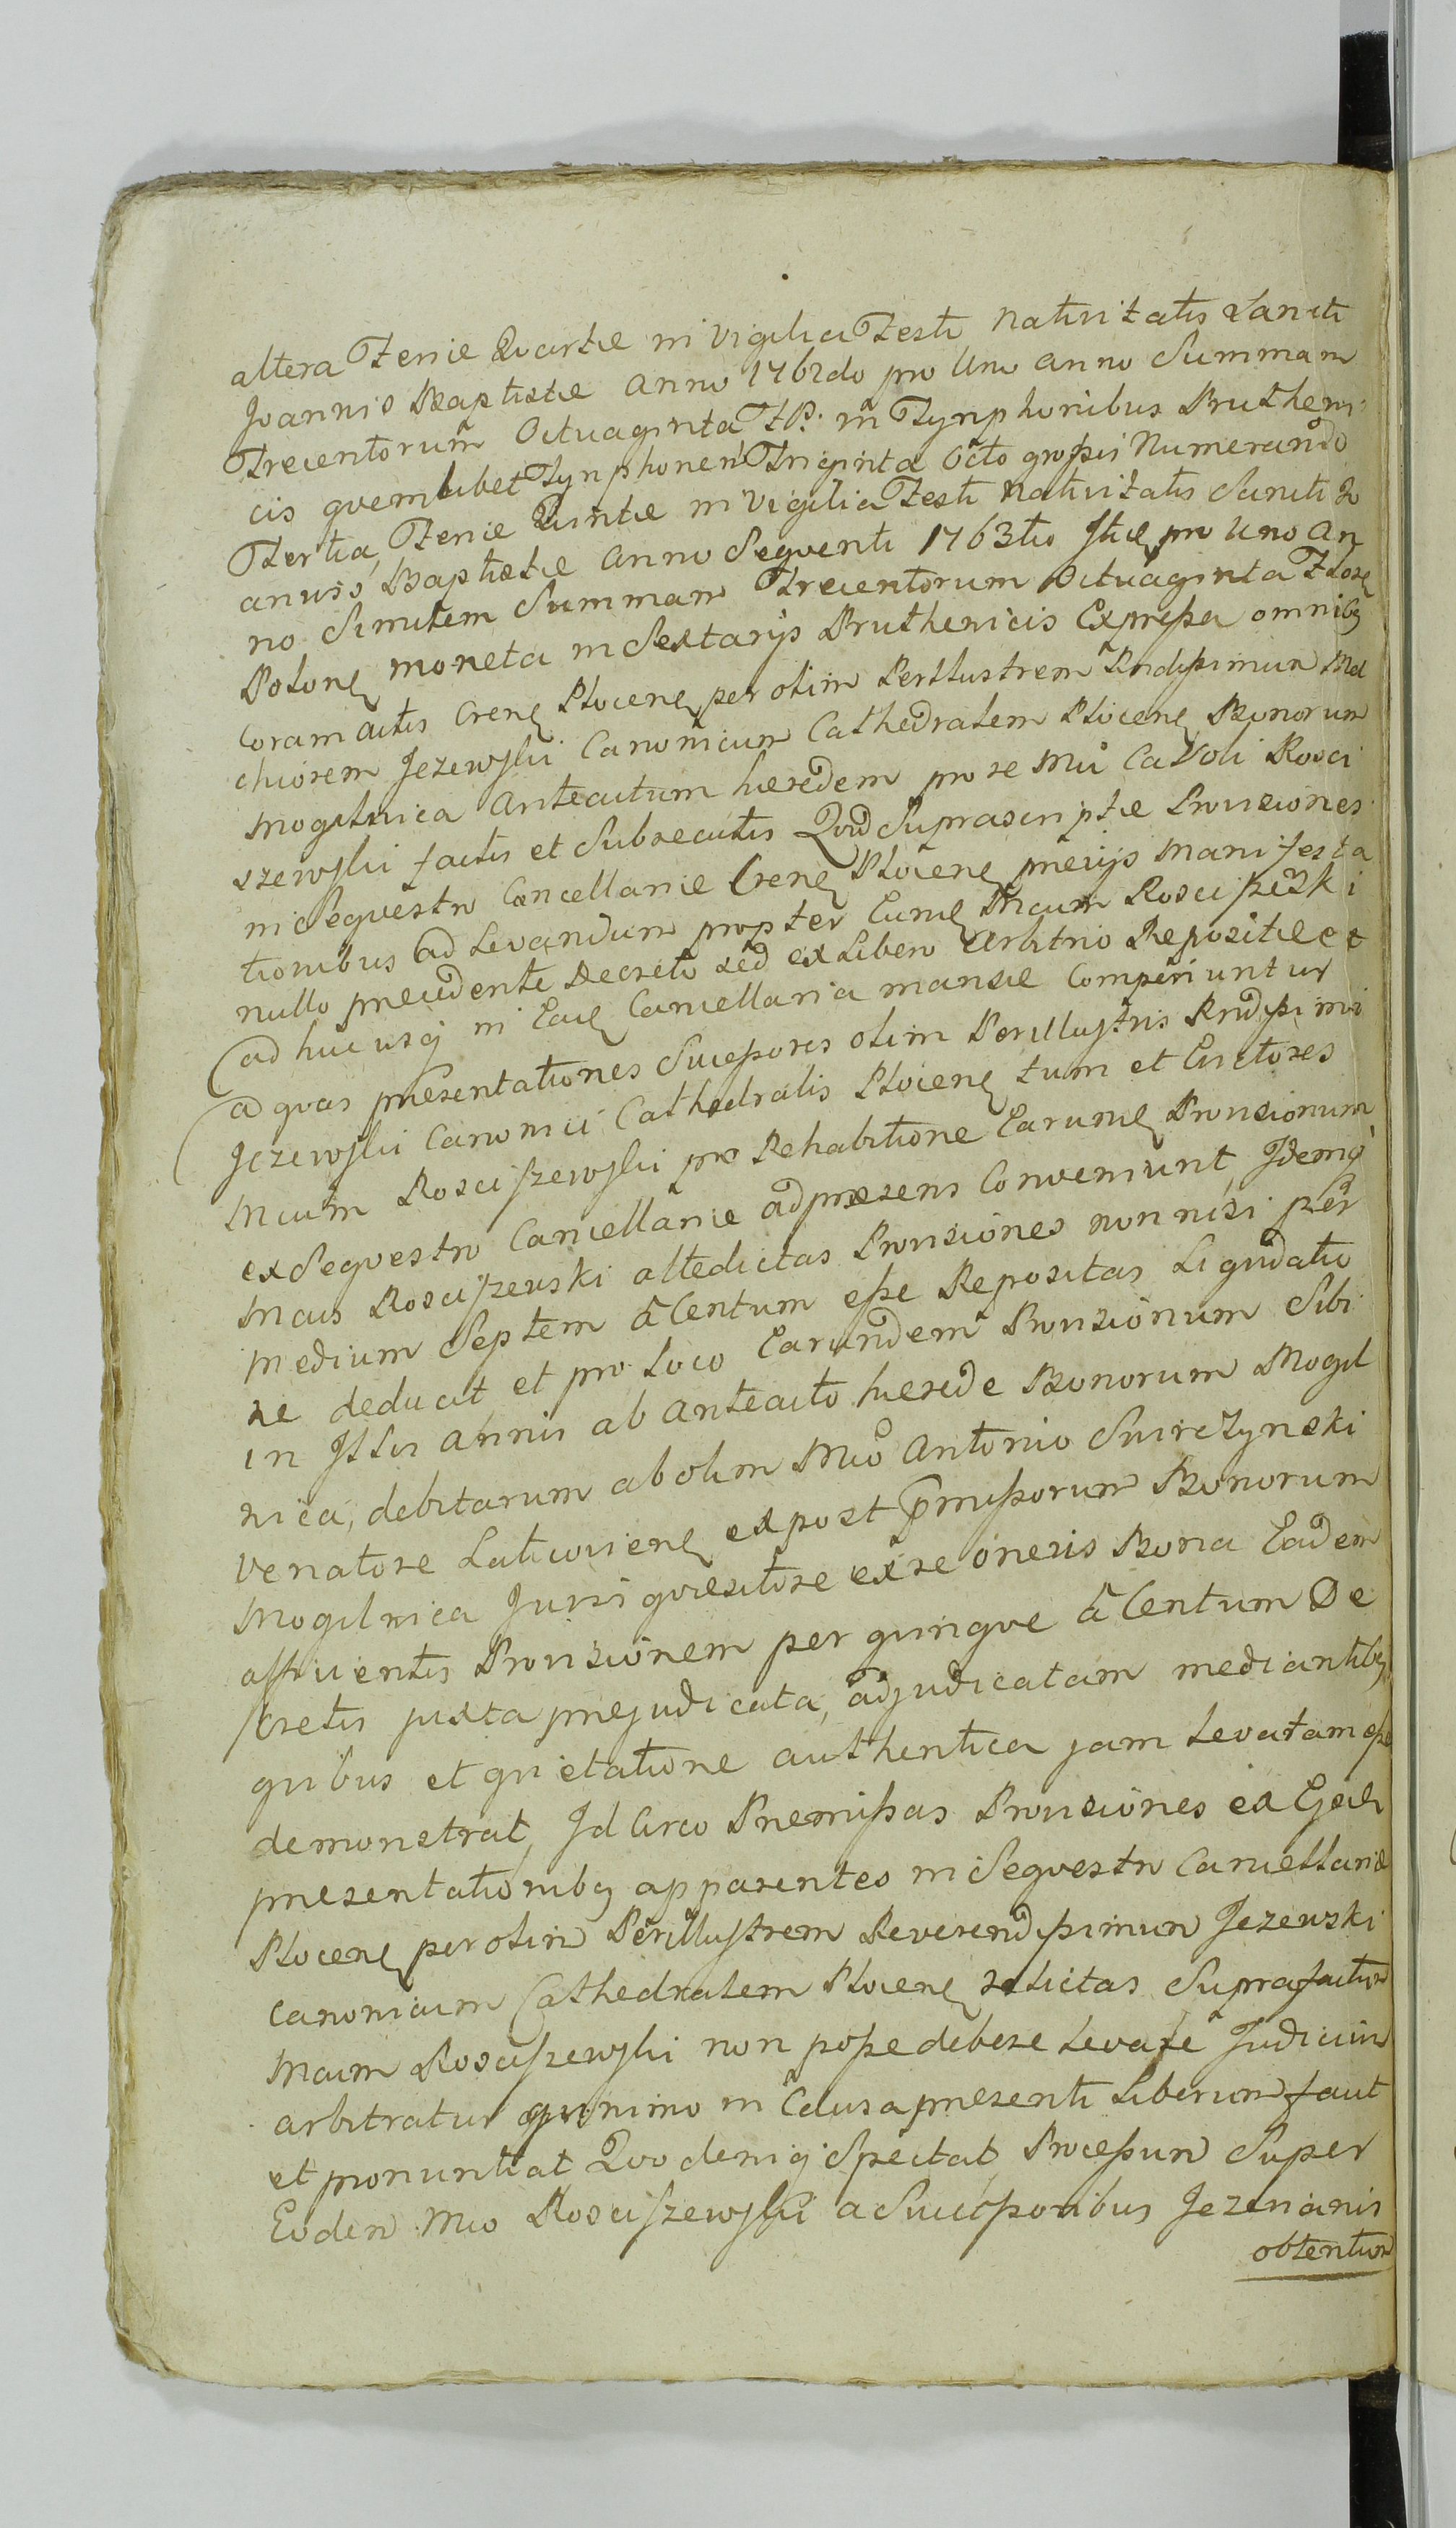 altera Feriæ Quartæ in Vigilia Festi Nativitatis Sancti
Joannis Baptistæ Anno 1762do pro Uno Anno Summam
Trecentorum Octuaginta FP. in Tynphonibus Prutheni
cis quemlibet Tynphonem Triginta Octo grossis Numerando
Tertia, Feriæ Quintæ in Vigilia Festi Nativitatis Sancti Jo
annis Baptistæ Anno Sequenti 1763tio Itidem pro Uno An
no Similem Summam Trecentorum Octuaginta Floren
Polonę moneta in Sextarijs Pruthenicis Expressa omnibq
Coram actis Crenę Plocenę per olim Perillustrem Rndissimum Mel
chiorem Jezewski Canonicum Cathedralem Plocenę Bonorum
Mogilnica Anteactum hæredem pro re Mci Caroli Rosci
szewski factis et Subsecutis Quod Suprascriptæ Provisiones
in Sequestro Cancellariæ Crenę Plocenę previjs Manifesta
tionibus ad Levandum propter Eumę Mcum Roscisski
nullo precedente Decreto sed ex Libero Arbitrio Repositæ et
ad huc usq in Eaę Cancellaria mansæ Comperiuntur
ad quas presentationes Successores olim Perillustris Rndissimi
Jezewski Canonici Cathedralis Plocenę tum et Curatores
Mcum Roscissewski pro Rehabitione Earumę Provisionum
ex Sequestro Cancellariæ ad præsens Conveniunt, Idemq
Mcus Roscissewski attedictas Provisiones non nisi per
medium Septem a Centum esse Repositas Liquidatio
ne deducit, et pro Loco Earundem Provisionum Sibi
in Istis Annis ab Anteacto hærede Bonorum Mogil
nica, debitarum ab olim Mco Antonio Swirczynski
Venatore Laticovienę expost præmissorum Bonorum
Mogilnica Juris quæsitore ex re oneris Bona Eadem
afficientis Provisionem per quinque a Centum De
cretis juxta prejudicata, adjudicatam mediantibq
quibus et quietatione authentica jam Levatam esse
demonstrat, Id Circo Premissas Provisiones ex Ejusdem
presentationibq apparentes in Sequestro Cancellariæ
Plocenę per olim Perillustrem Reverendissimum Jezewski
Canonicum Cathedralem Plocenę relictas Suprafactum
Mcum Roscissewski non posse debere Levare Judicium
arbitratur quinimo in Causa presenti Liberum facit
et pronuntiat Quo deniq Spectat, Processum Super
Eodem Mco Roscissewski a Successoribus Jezevianis
obtentum